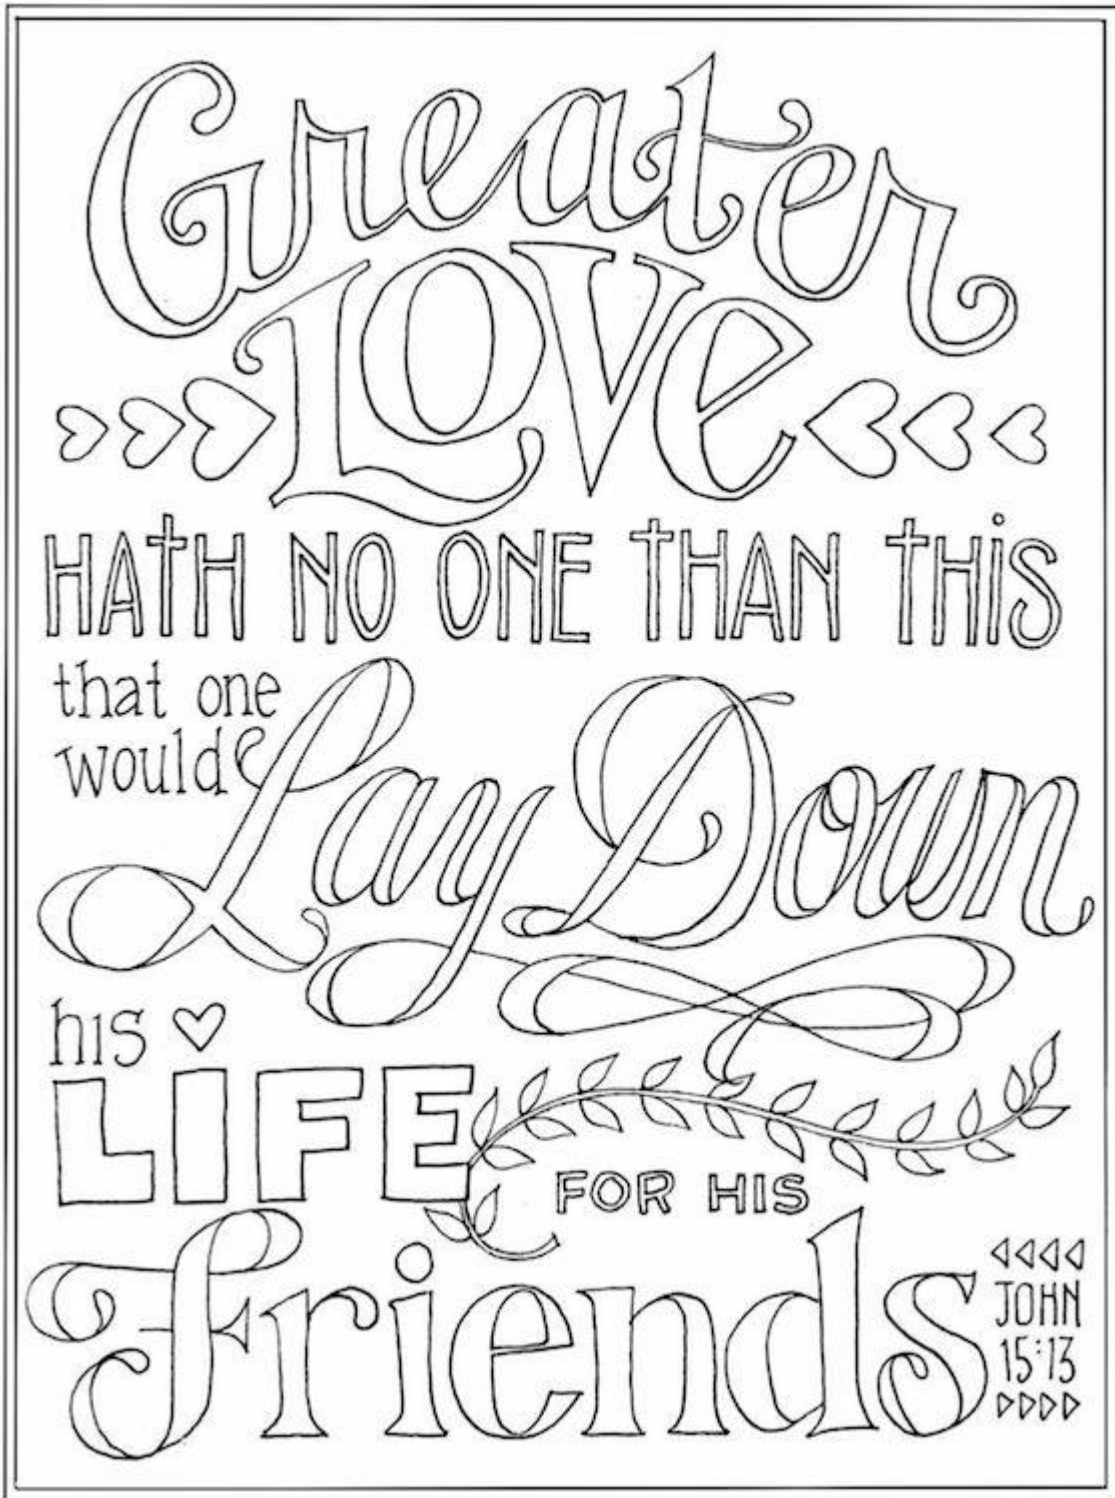 Greater
LOVe
HATH NO ONE THAN THiS
that one
would Lay Down
his
LIFE
FOR HIS
Friends
JOHN
15:13